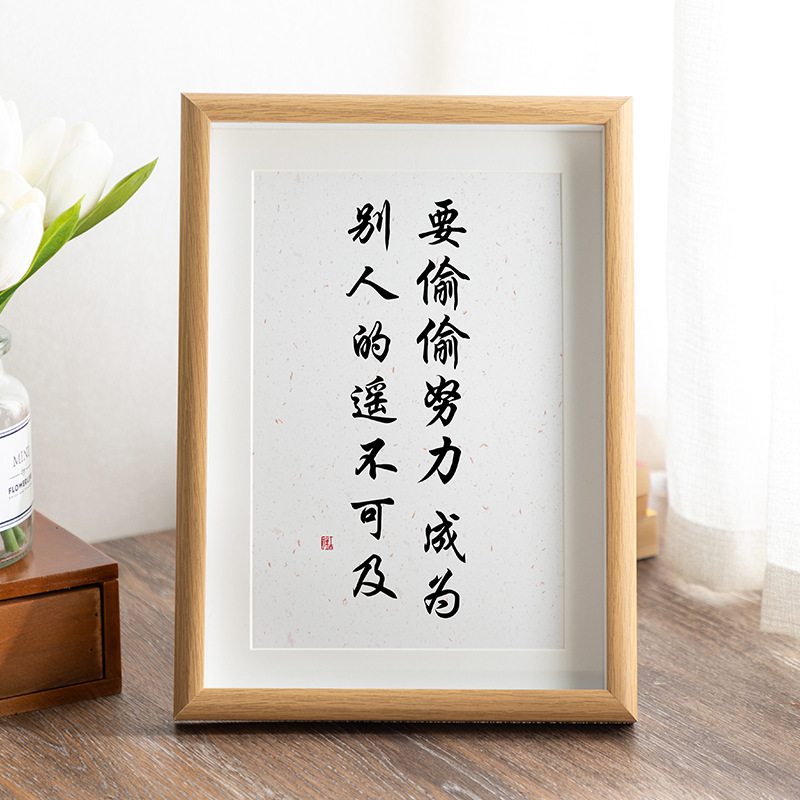 要偷偷努力 成为
别人的遥不可及